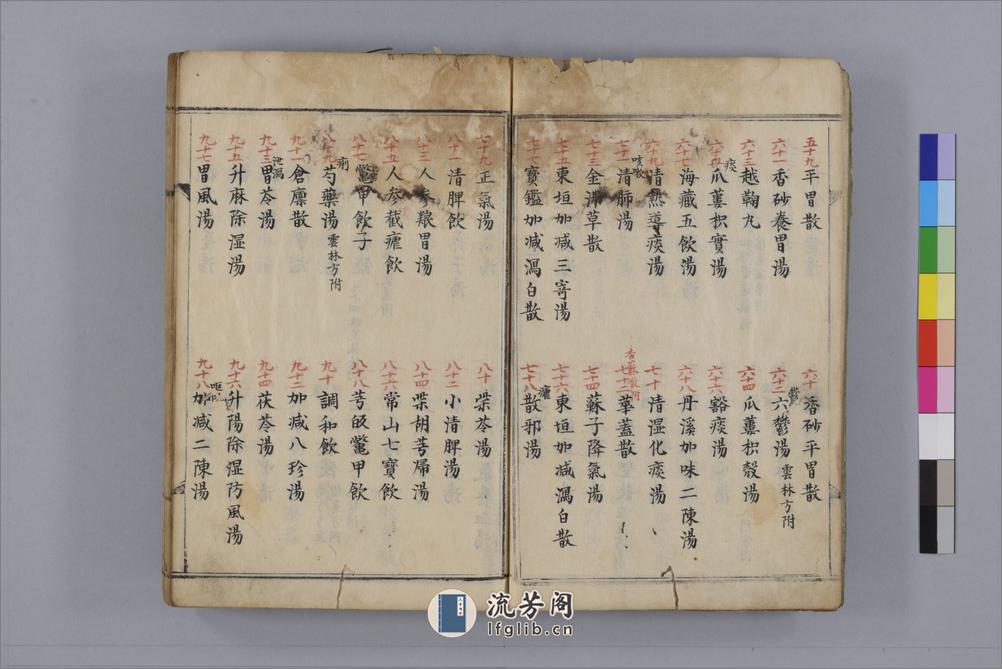 五十九平胃散
六十香砂平胃散
六十一香砂養胃湯
鬱
六十二六鬱湯雲林方附
六十三越鞠丸
六十四瓜蔞枳殼湯
痰
六十五瓜蔞枳實湯
六十六豁痰湯
六十七海藏五飲湯
六十八丹溪加味二陳湯
六十九清熱導痰湯
七十清湿化痰湯
咳嗽
七十一清肺湯
七十二華蓋散
七十三金沸草散
七十四蘇子降氣湯
七十五東垣加减三寄湯
七十六東垣加减瀉白散
七十七寶鑑加减瀉白散
瘧
七十八散邪湯
七十九正氣湯
八十柴苓湯
八十一清脾飲
八十二小清脾湯
八十三人参養胃湯
八十四柴胡芎歸湯
八十五人参截瘧飲
八十六常山七寶飲
八十七鱉甲飲子
八十八芎皈鱉甲飲
痢
八十九芍藥湯雲林方附
九十調和飲
九十一倉廩散
九十二加减八珍湯
泄瀉
九十三胃苓湯
九十四茯苓湯
九十五升麻除湿湯
九十六升陽除湿防風湯
九十七胃風湯
九十八加减二陳湯
流芳阁
lfglib.cn